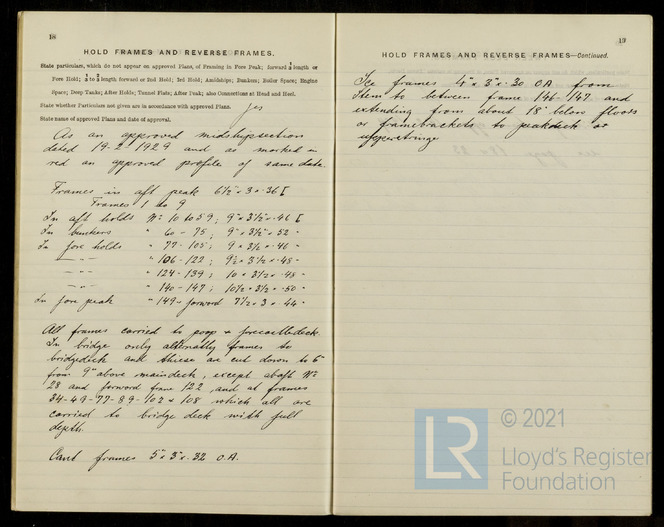 18
HOLD FRAMES AND REVERSE FRAMES.
State particulars, which do not appear on approved Plans, of Framing in Fore Peak; forward ⅗ length or
Fore Hold; length forward or 2nd Hold; 3rd Hold; Amidships; Bunkers; Boiler Space; Engine
Space; Deep Tanks; After Holds; Tunnel Flats; After Peak; also Connections at Head and Heel.
State whether Particulars not given are in accordance with approved Plans. Yes
State name of approved Plans and date of approval.
As an approved midshipsection
dated 19-2-1929 and as marked in
red an approved profile of same date.
Frames in aft peak 6½" × 3 × .36 [
Frames 1 to 9
In aft holds No 10 to 59; 9" × 3½" × .46 [
In bunkers " 60 - 75; 9" × 3½" × .52 "
In fore holds " 77 - 105; 9 × 3½ × .46 "
— " — " 106 - 122; 9½ × 3½ × .48 "
— " — " 124 - 139; 10 × 3½ × .48 "
— " — " 140 - 147; 10½ × 3½ × .50 "
In fore peak " 149 - forward 7½ × 3 × .44 "
All frames carried to poop & forecastledeck.
In bridge only alternatly frames to
bridgedeck and thiese are cut down to 6"
from 9" above maindeck, except abaft No
28 and forward frame 122, and at frames
34-49-77-89-103 & 108 which all are
carried to bridge deck with full
depth.
Cant frames 5" × 3" × .32 O.A.
19
HOLD FRAMES AND REVERSE FRAMES—Continued.
Ice frames 4" × 3" × .30 O.A. from
stem to between frame 146-147 and
extending from about 18" below floors
or framebrackets to peakdeck or
upperstringer
© 2021
LR
Lloyd's Register
Foundation